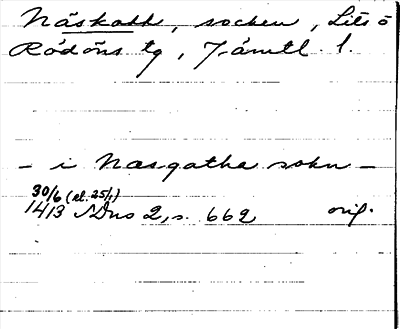 Näskott, socken, Lits o
Rödöns tg, Jämtl. l.
- i Nasgatha sokn -
30/6 (el. 25/1)
1413 SDns 2, s. 662 orig.